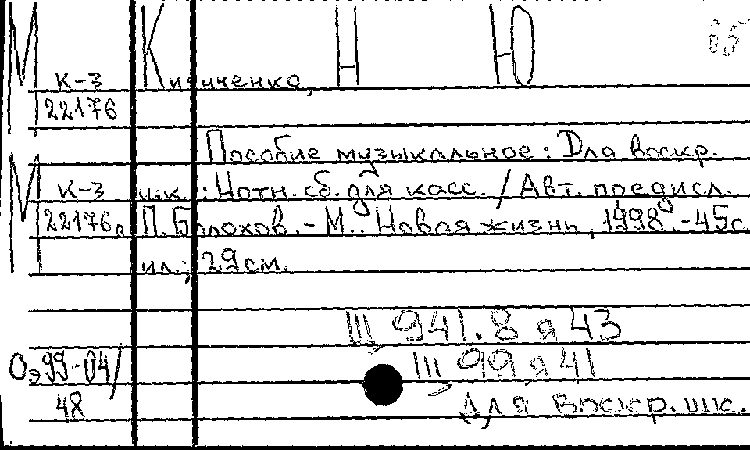 М К Н Ю
К-3
22176
Пособие музыкальное: Для воскр.
М К-3 шк.: Нотн. сб. для касс. / Авт. предисл.
22176а П. Болохов. - М.: Новая жизнь, 1998. - 45с.
ил.; 29см.
Щ 941.8 я 43
Оэ99-04/ Щ 99 я 41
48 Для воскр. шк.